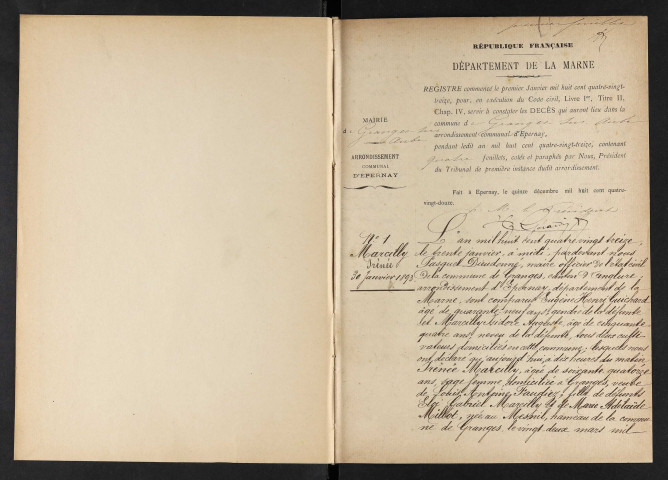 première feuille
RÉPUBLIQUE FRANÇAISE
DÉPARTEMENT DE LA MARNE
REGISTRE commencé le premier Janvier mil huit cent quatre-vingt-
treize, pour, en exécution du Code civil, Livre Ier, Titre II,
Chap. IV, servir à constater les DÉCÈS qui auront lieu dans la
commune de Granges sur Aube
arrondissement communal d'Epernay,
pendant ledit an mil huit cent quatre-vingt-treize, contenant
quatre feuillets, cotés et paraphés par Nous, Président
du Tribunal de première instance dudit arrondissement.
Fait à Epernay, le quinze décembre mil huit cent quatre-
vingt-douze.
MAIRIE
de Granges sur
Aube
ARRONDISSEMENT
COMMUNAL
D'EPERNAY
Le Président
N° 1
Marcelly
Irénée
30 Janvier 1893
L'an mil huit cent quatre vingt treize,
le trente janvier, à midi, pardevant nous
Pasquet Dieudonné, maire officier de l'état civil
de la commune de Granges, canton d'Anglure
arrondissement d'Epernay, département de la
Marne, sont comparus Eugène Henry Guichard
âgé de quarante neuf ans, gendre de la défunte
et Marcelly Isidore Auguste, âgé de cinquante
quatre ans, neveu de la défunte, tous deux culti-
vateurs domiciliés en cette commune; lesquels nous
ont déclaré qu'aujourd'hui, à dix heures du matin
Irénée Marcelly, âgée de soixante quatorze
ans, sage femme, domiciliée à Granges, veuve
de Louis Antoine ; fille de défunts
Gabriel Marcelly et de Marie Adélaïde
Millot, née au Mesnil, hameau de la commu-
ne de Granges, le vingt deux mars mil-